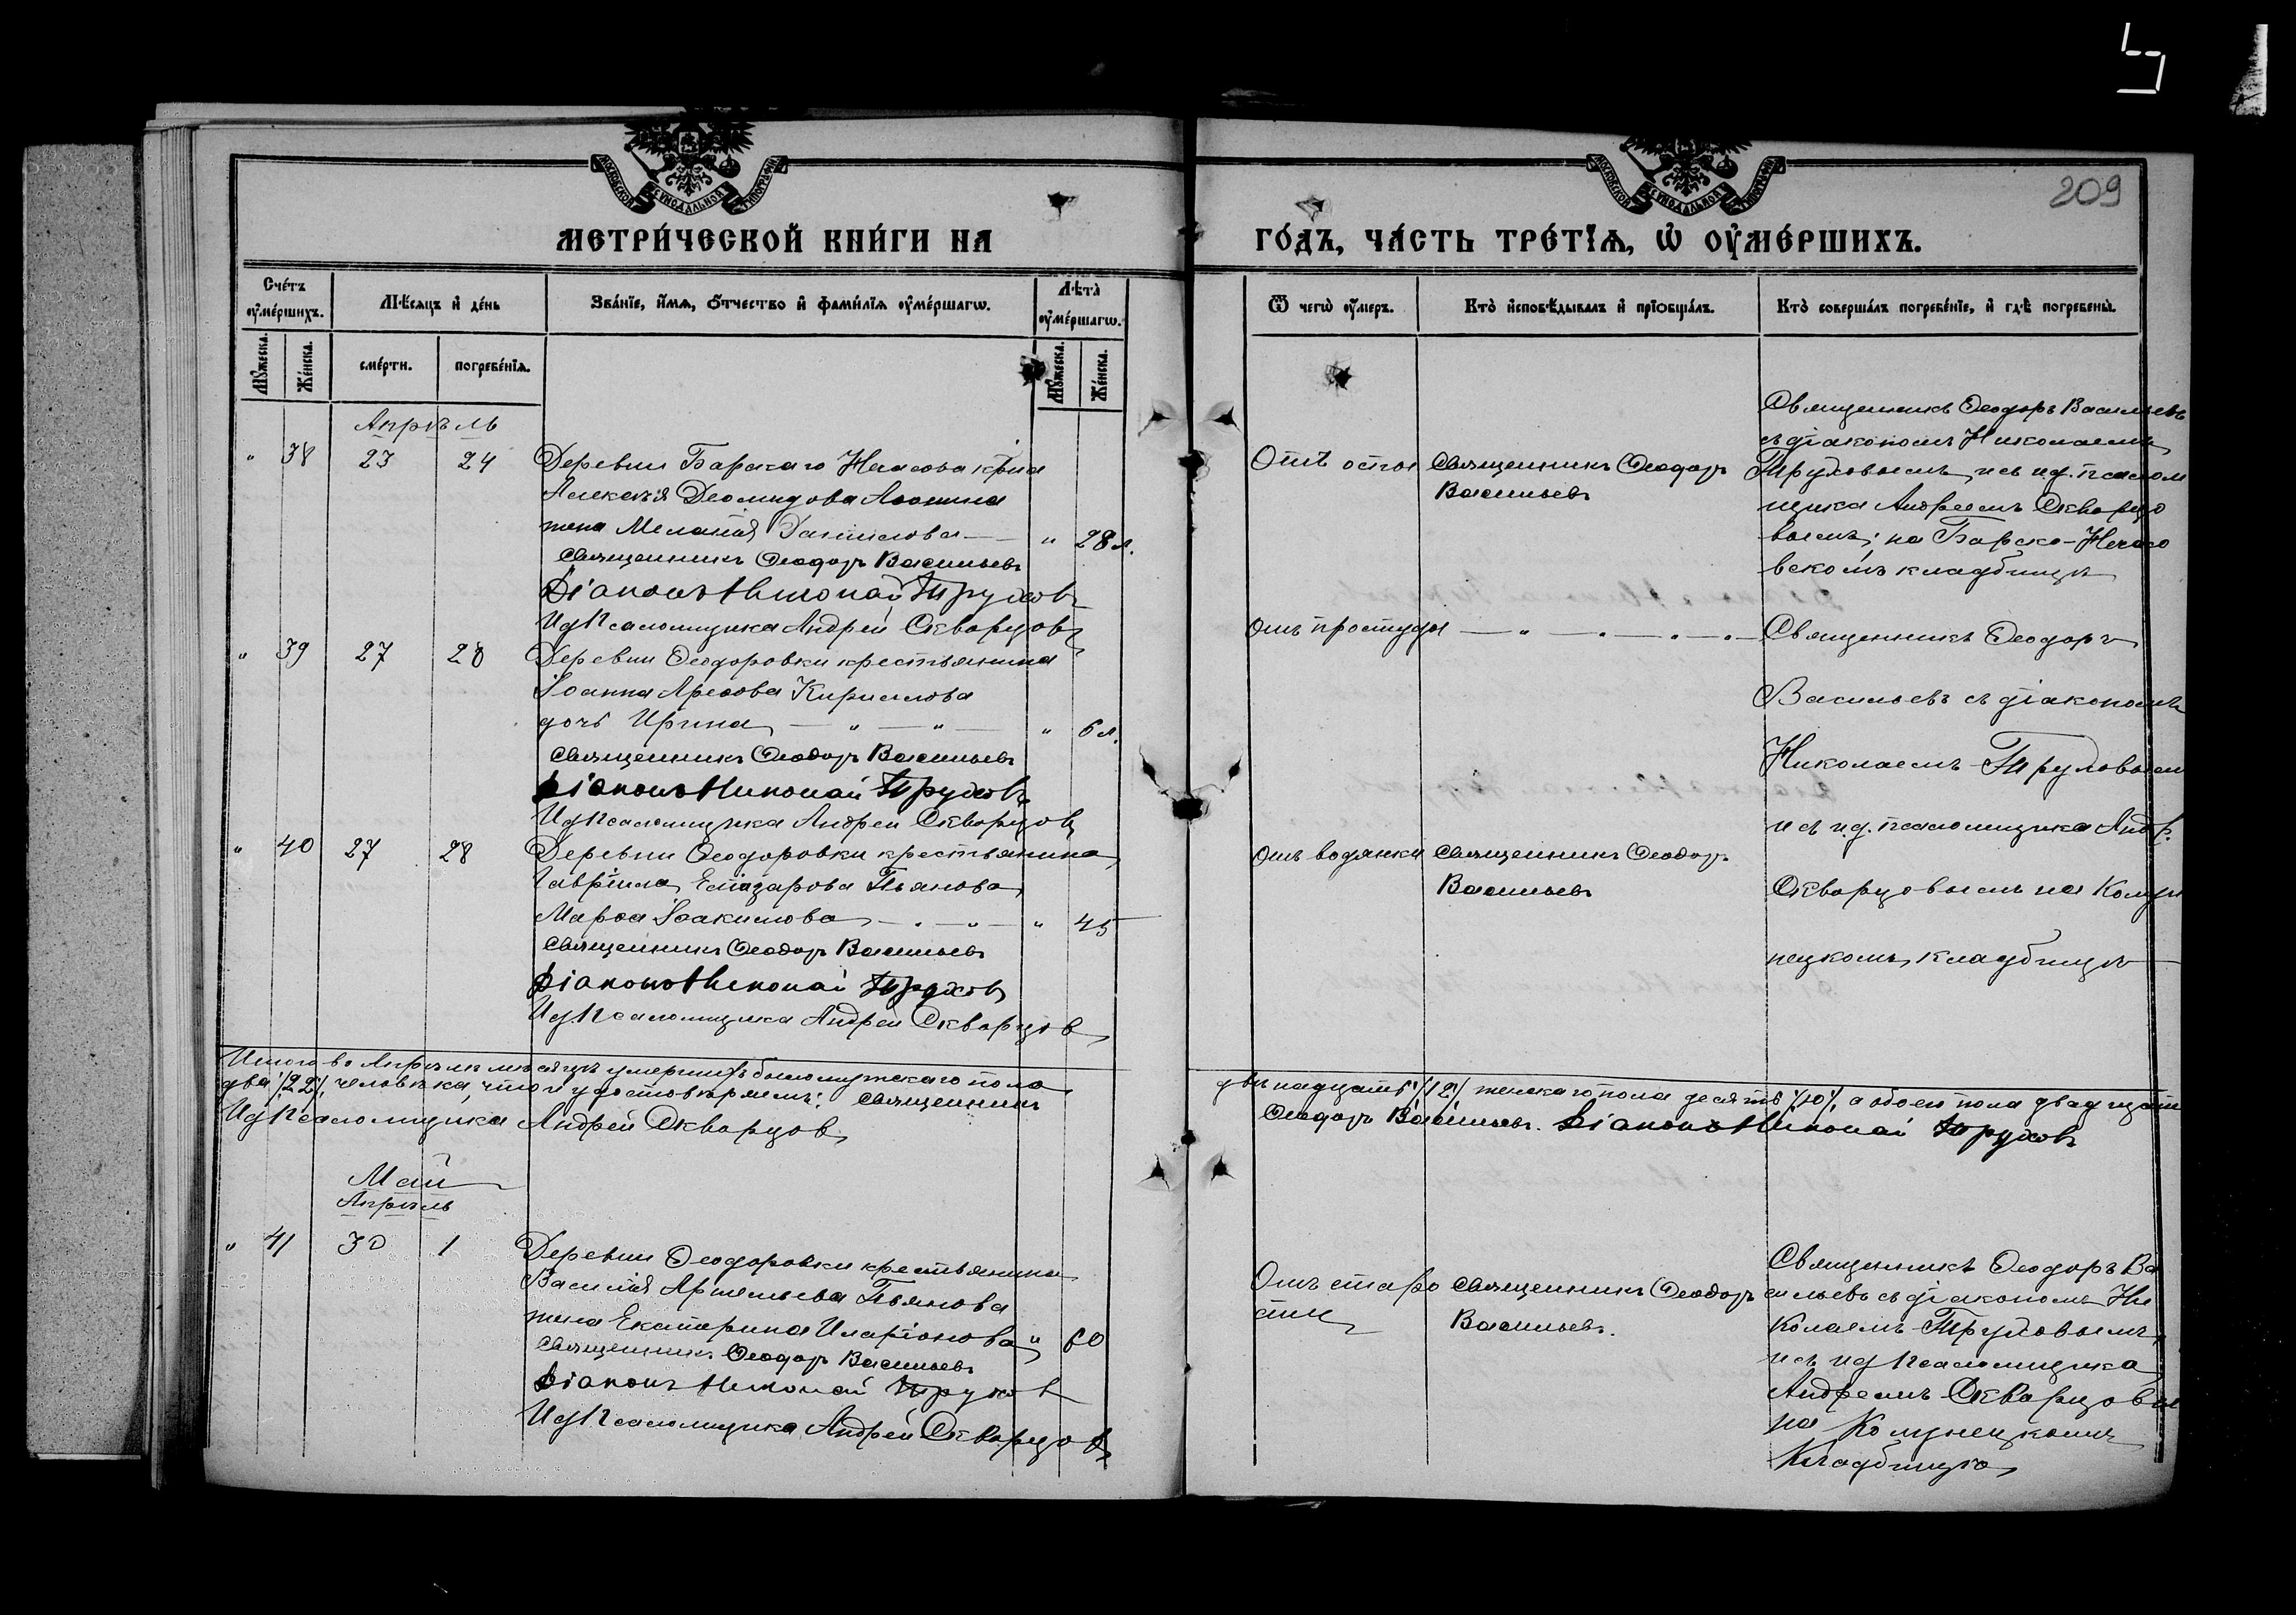 209
МОСКОВСКОЙ СѴНОДАЛЬНОЙ ТИПОГРАФІИ
МОСКОВСКОЙ СѴНОДАЛЬНОЙ ТИПОГРАФІИ
МЕТРИ́ЧЕСКОЙ КНИ́ГИ НА
ГО́ДЪ, ЧА́СТЬ ТРЕ́ТЇѦ, Ѡ҆ ОУ҆МЕ́РШИХЪ.
Сче́тъ оу҆ме́ршихъ.
Мѣ́сѧцъ и҆ де́нь
Зва́нїе, и҆́мѧ, ѻ҆́тчество и҆ фами́лїѧ оу҆ме́ршагѡ.
Лѣ́та оу҆ме́ршагѡ.
Ѿ чегѡ̀ оу҆́меръ.
Кто̀ и҆сповѣ́дывалъ и҆ прїѡбща́лъ.
Кто̀ соверша́лъ погребе́нїе, и҆ гдѣ̀ погребены̀.
Мꙋ́жеска.
Же́нска.
сме́рти.
погребе́нїѧ.
Мꙋ́жеска.
Же́нска.
Апрѣль
" 38 23 24
Деревни Барскаго Нечасова кр-на
Алексѣя Деомидова
жена Меланія Данилова — " 28 л.
Священникъ Ѳеодоръ Васильевъ
Діаконъ Николай Труховъ
Ид Псаломщика Андрей Скворцовъ
Отъ оспы
Священникъ Ѳеодоръ
Васильевъ
Священникъ Ѳеодоръ Васильевъ
съ діакономъ Николаемъ
Труховымъ и съ и.д. псалом
щика Андреемъ Скворцо
вымъ; на Барско-Нечасо
вскомъ кладбищѣ
" 39 27 28
Деревни Ѳеодоровки крестьянина
Іоанна Ареѳова Кириллова
дочь Ирина — " — " — " 6 л.
Священникъ Ѳеодоръ Васильевъ
Діаконъ Николай Труховъ
Ид Псаломщика Андрей Скворцовъ
Отъ простуды — " — " — " — " —
Священникъ Ѳеодоръ
Васильевъ съ діакономъ
Николаемъ Труховымъ
и съ и.д. псаломщика Андр.
Скворцовымъ на Колун
нецкомъ кладбищѣ
" 40 27 28
Деревни Ѳеодоровки крестьянина
Гавріила Еліазарова Пьянова
Марѳа Іоакимова — " — " — " 45
Священникъ Ѳеодоръ Васильевъ
Діаконъ Николай Труховъ
Ид Псаломщика Андрей Скворцов
Отъ водянки
Священникъ Ѳеодоръ
Васильевъ
Итого въ Апрѣлѣ мѣсяцѣ умершихъ было мужскаго пола
двѣнадцать /12/, женскаго пола десять /10/, а обоего пола двадцать
два /22/ человѣка, что и удостовѣряемъ: Священникъ
Ѳеодоръ Васильевъ. Діаконъ Николай Труховъ
Ид Псаломщика Андрей Скворцовъ
Май
Апрѣль
" 41 30 1
Деревни Ѳеодоровки крестьянина
Василія Артемьева Пьянова
жена Екатерина Иларіонова " 60
Священникъ Ѳеодоръ Васильевъ
Діаконъ Николай Трухов
Ид Псаломщика Андрей Скворцовъ
Отъ старо
сти
Священникъ Ѳеодоръ
Васильевъ.
Священникъ Ѳеодоръ Ва
сильевъ съ діакономъ Ни
колаемъ Труховымъ
и съ ид Псаломщика
Андреемъ Скворцовым
на Колунецкомъ
Кладбищѣ